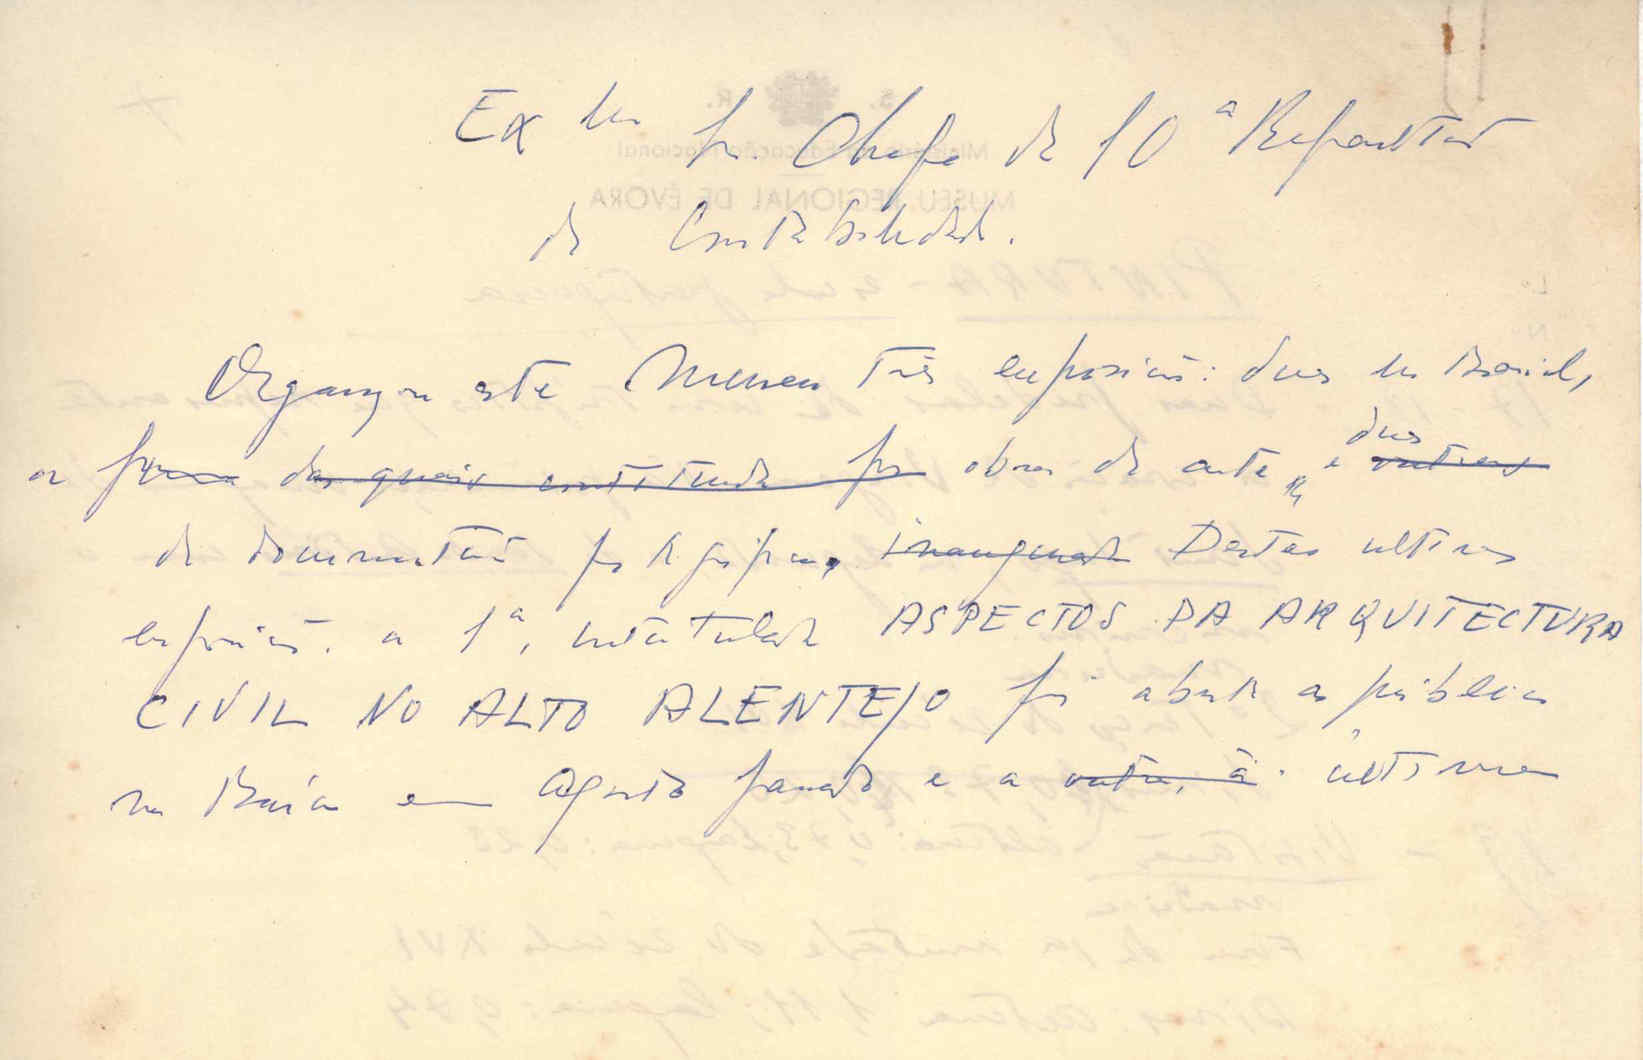 Ex.mo Sr. Chefe da 10ª Repartição
da Contabilidade.
Organizou este Museu três exposições: duas no Brasil,
das quais constituída por obras de arte e duas outras
de documentação fotográfica, inaugurada Destas ultimas
exposições, a 1ª, intitulada ASPECTOS DA ARQUITECTURA
CIVIL NO ALTO ALENTEJO foi aberta ao público
na Baía em Agosto passado e a outra, à última